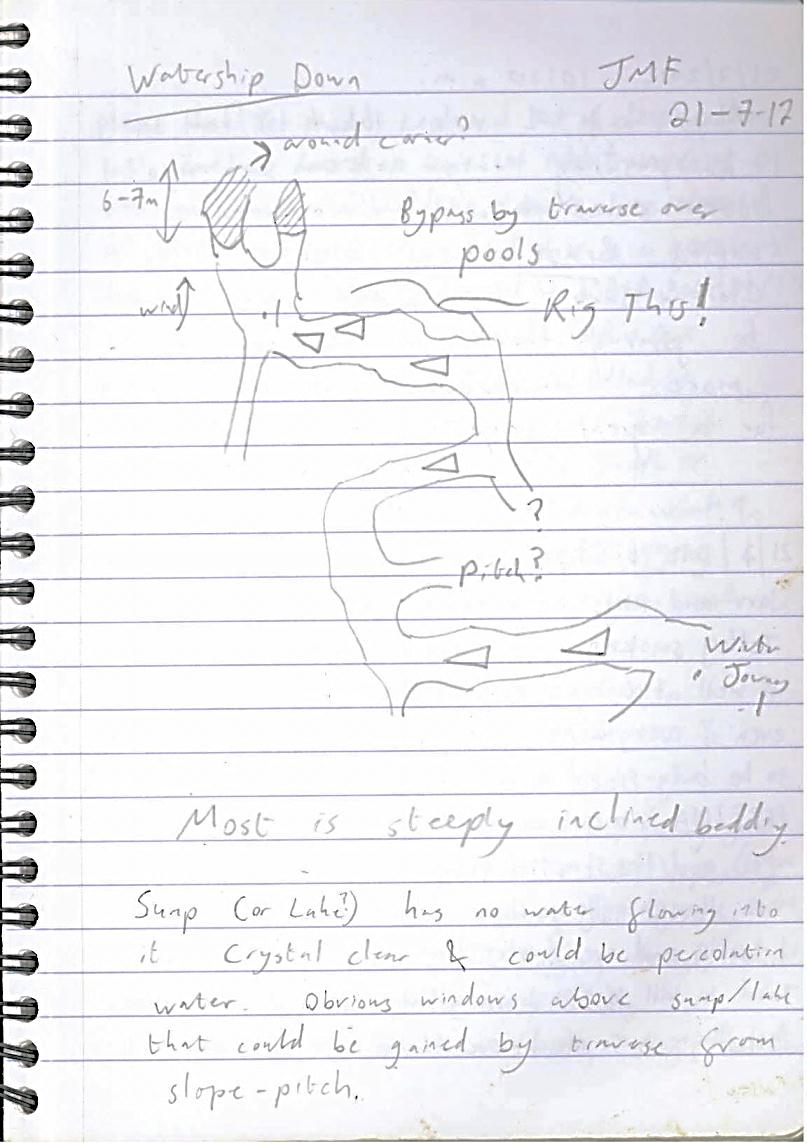 Watership Down
JMF
21-7-12
around corner?
6-7m
Bypass by traverse over
pools
wind
Rig This!
.1
?
pitch?
Water
Journey
.1
Most is steeply inclined bedding.
Sump (or Lake?) has no water flowing into
it Crystal clear & could be percolation
water. Obvious windows above sump/lake
that could be gained by traverse from
slope-pitch.